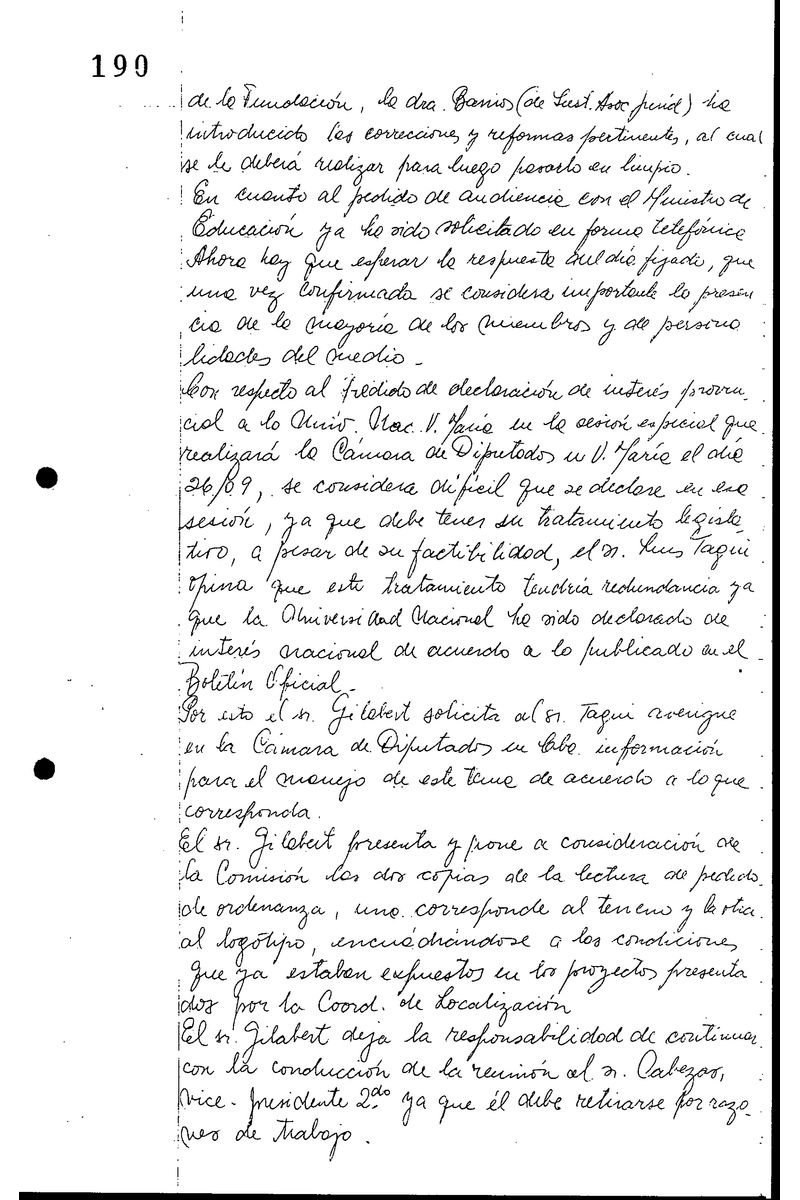 190
de la Fundación, la dra. Barrios (de Inst. Asoc. Juríd) ha
introducido las correcciones y reformas pertinentes, al cual
se le deberá realizar para luego pasarlo en limpio.
En cuanto al pedido de audiencia con el Ministro de
Educación ya ha sido solicitado en forma telefónica
Ahora hay que esperar la respuesta del día fijado, que
una vez confirmada se considera importante la presen
cia de la mayoría de los miembros y de persona
lidades del medio -
Con respecto al pedido de declaración de interés provin
cial a la Univ. Nac. V. María en la sesión especial que
realizará la Cámara de Diputados en V. María el día
26/09, se considera difícil que se declare en esa
sesión, ya que debe tener su tratamiento legisla
tivo, a pesar de su factibilidad, el sr. Luis Tagui
opina que este tratamiento tendría redundancia ya
que la Universidad Nacional ha sido declarado de
interés nacional de acuerdo a lo publicado en el
Boletín Oficial -
Por esto el sr. Gilabert solicita al sr. Tagui averigue
en la Cámara de Diputados en Cba. información
para el manejo de este tema de acuerdo a lo que
corresponda.
El sr. Gilabert presenta y pone a consideración de
la Comisión las dos copias de la lectura de pedido
de ordenanza, una corresponde al terreno y la otra
al logotipo, encuadrándose a las condiciones
que ya estaban expuestos en los proyectos presenta
dos por la Coord. de Localización
El sr. Gilabert deja la responsabilidad de continuar
con la conducción de la reunión al sr. Cabezas,
vice-presidente 2do ya que él debe retirarse por razo
nes de trabajo.